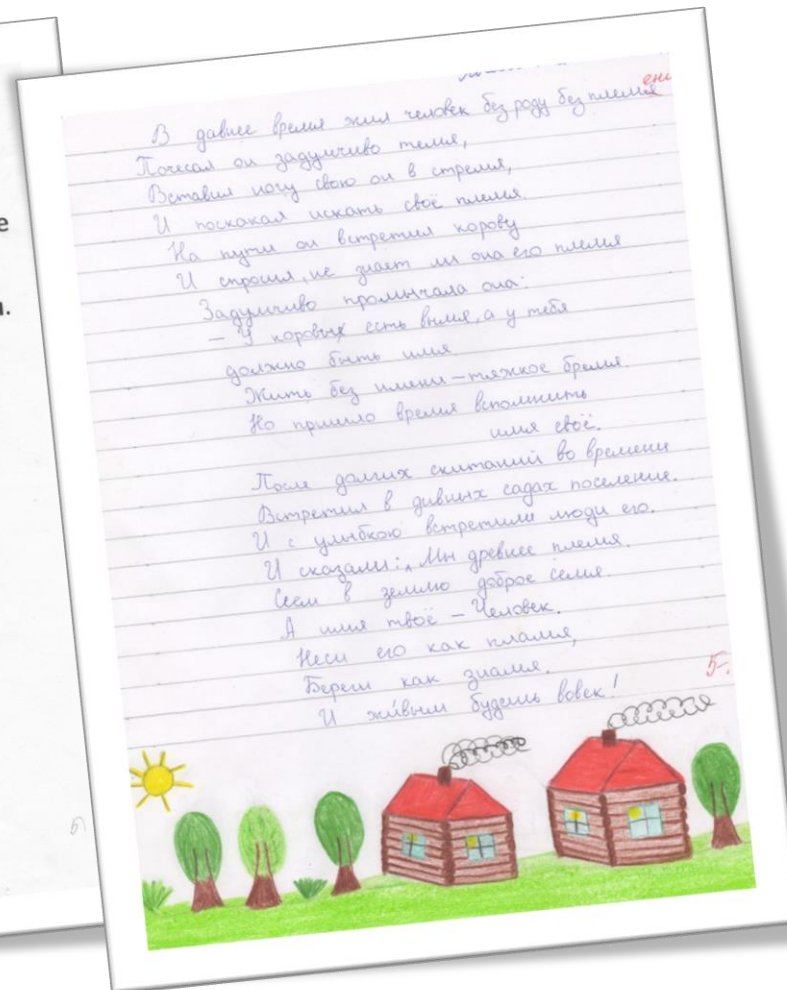 В давнее время жил человек без роду без племя
ени
Почесал он задумчиво темя,
Вставил ногу свою он в стремя,
И поскакал искать своё племя.
На пути он встретил корову
И спросил, не знает ли она его племя
Задумчиво промычала она:
– У коровы есть вымя, а у тебя
должно быть имя
Жить без имени – тяжкое бремя.
Но пришло время вспомнить
имя своё.
После долгих скитаний во времени
Встретил в дивных садах поселение.
И с улыбкою встретили люди его.
И сказали: „Мы древнее племя.
Сеем в землю доброе семя.
А имя твоё – Человек.
Неси его как пламя,
Береги как знамя.
И живым будешь вовек!
5-.
е
.